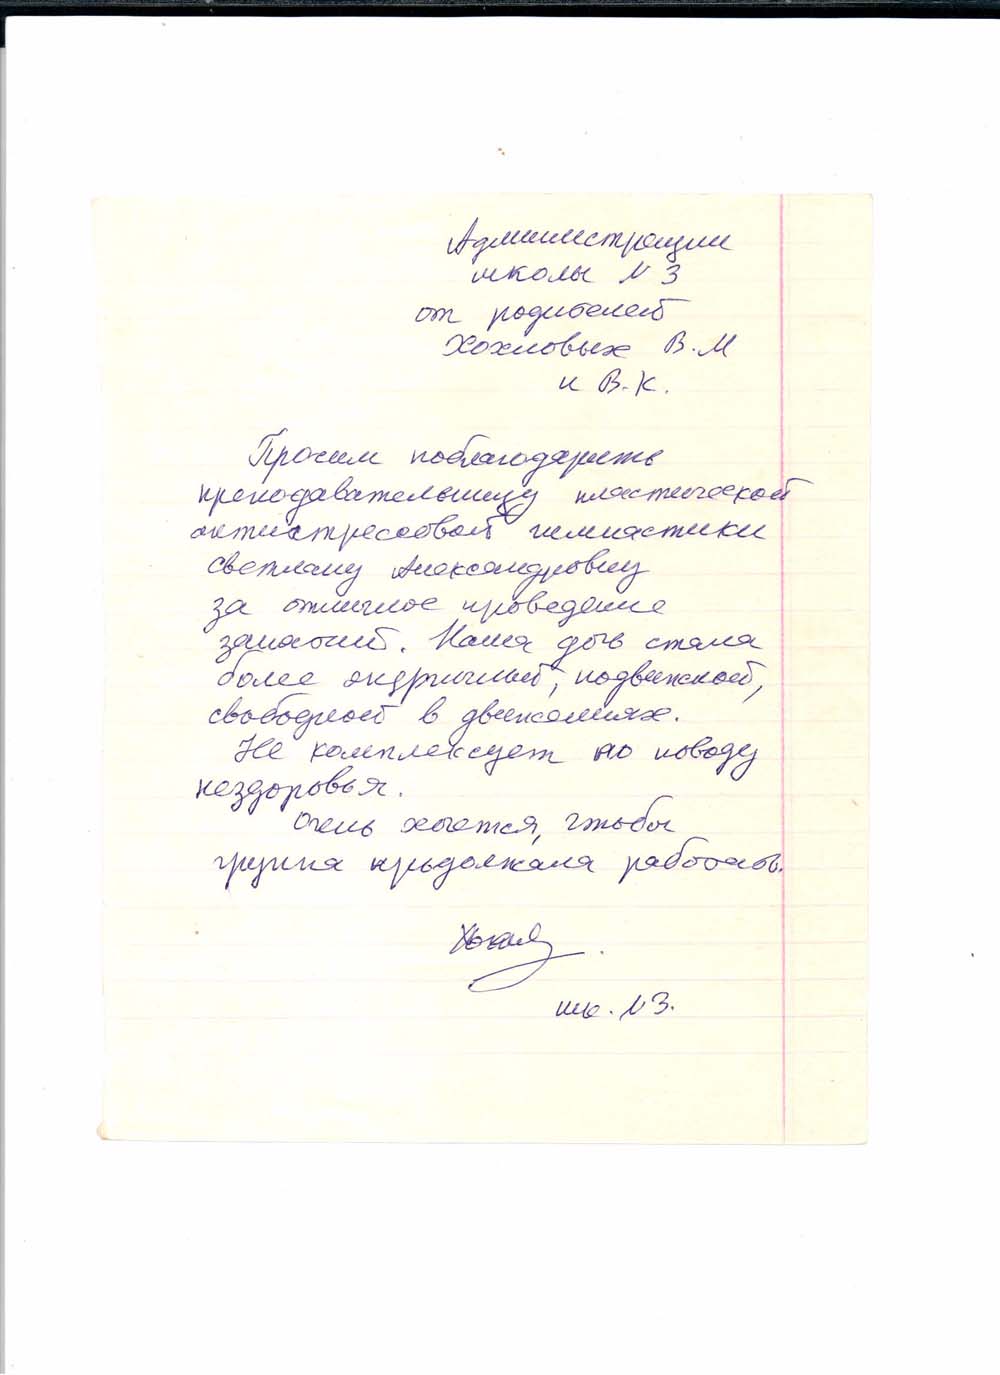 Администрации
школы N 3
от родителей
Хохловых В.М
и В.К.
Просим поблагодарить
преподавательницу пластической
антистрессовой гимнастики
Светлану Александровну
за отличное проведение
занятий. Наша дочь стала
более энергичной, подвижной,
свободной в движениях.
Не комплексует по поводу
нездоровья.
Очень хочется, чтобы
группа продолжала работать.
шк. N 3.